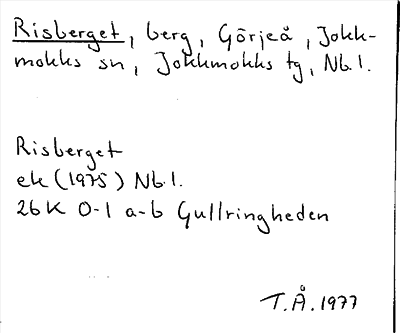 Risberget, berg, Görjeå, Jokk-
mokks sn, Jokkmokks tg, Nb.l.
Risberget
ek (1975) Nb.l.
26K 0-1 a-b Gullringheden
T.Å. 1977